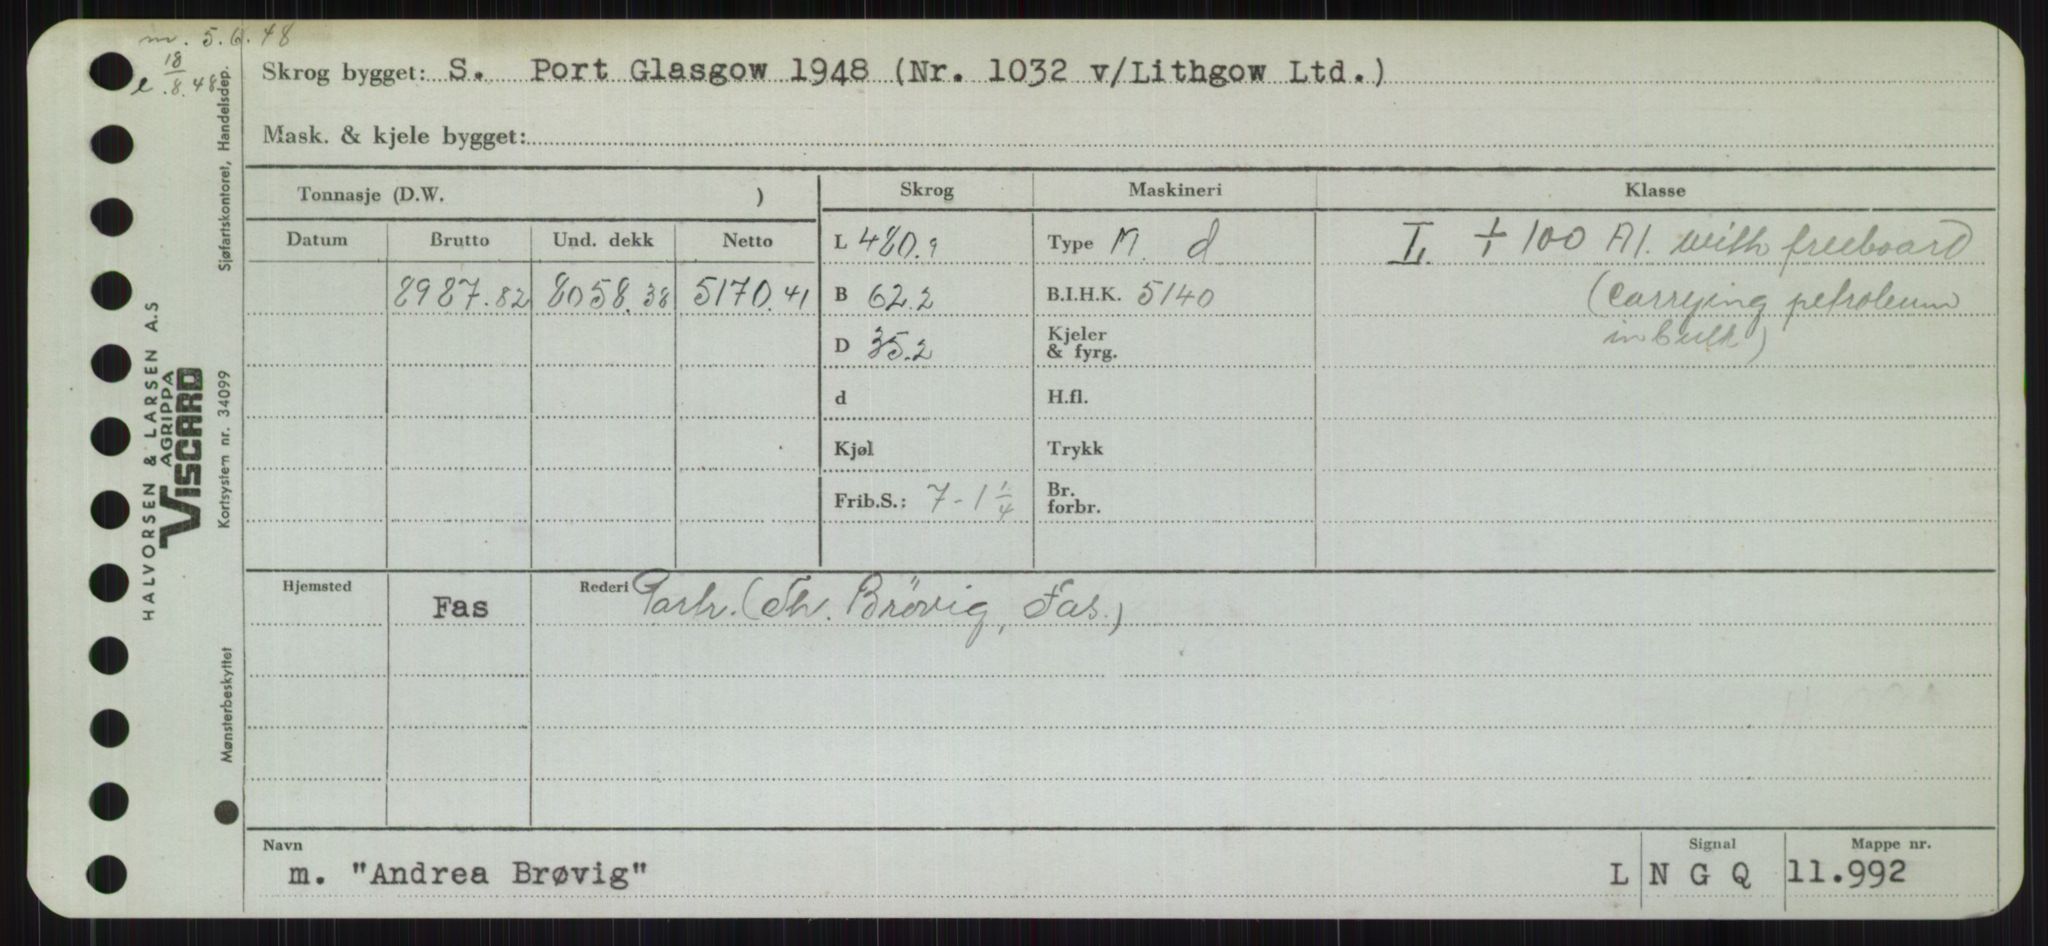 m. 5.6.48
e 18/8.48
Skrog bygget: S. Port Glasgow 1948 (Nr. 1032 v/Lithgow Ltd.)
Mask. & kjele bygget:
Tonnasje (D.W. )
Skrog
Maskineri
Klasse
Datum Brutto Und. dekk Netto
8987.82 8058.38 5170.41
L 480.9
B 62.2
D 35.2
d
Kjøl
Frib.S.: 7-1 1/4
Type M. d
B.I.H.K. 5140
Kjeler
& fyrg.
H.fl.
Trykk
Br.
forbr.
L. + 100 A1. with freeboard
(carrying petroleum
in bulk)
Hjemsted Fas
Rederi Partr. (Th. Brøvig, Fas.)
Navn
m. "Andrea Brøvig"
Signal
L N G Q
Mappe nr.
11.992
HALVORSEN & LARSEN A.S
AGRIPPA
VISCARD
Mønsterbeskyttet Kortsystem nr. 34099 Sjøfartskontoret, Handelsdep.